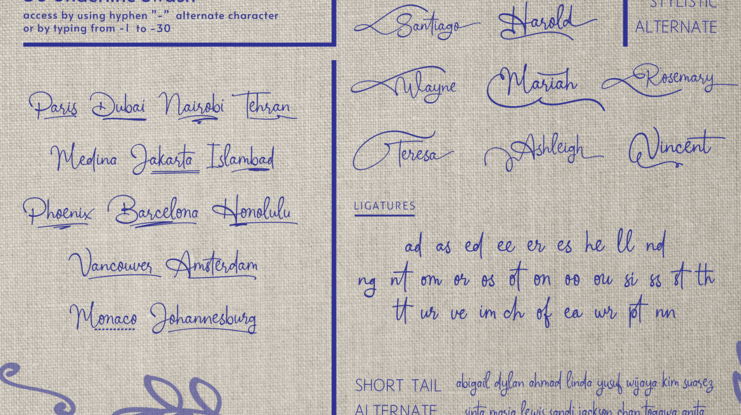 access by using hyphen "-" alternate character
or by typing from -1 to -30
Paris Dubai Nairobi Tehran
Medina Jakarta Islambad
Phoenix Barcelona Honolulu
Vancouver Amsterdam
Monaco Johannesburg
Santiago Harold
STYLISTIC
ALTERNATE
Wayne Mariah Rosemary
Teresa Ashleigh Vincent
LIGATURES
ad as ed ee er es he ll nd
ng nt om or os ot on oo ou si ss st th
tt ur ve im ch of ea wr pt nn
SHORT TAIL
ALTERNATE
abigail dylan ahmad linda yusuf wijaya kim suarez